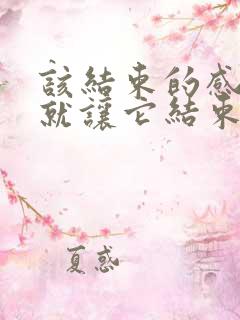 該結束的感
就讓它結束
夏惑